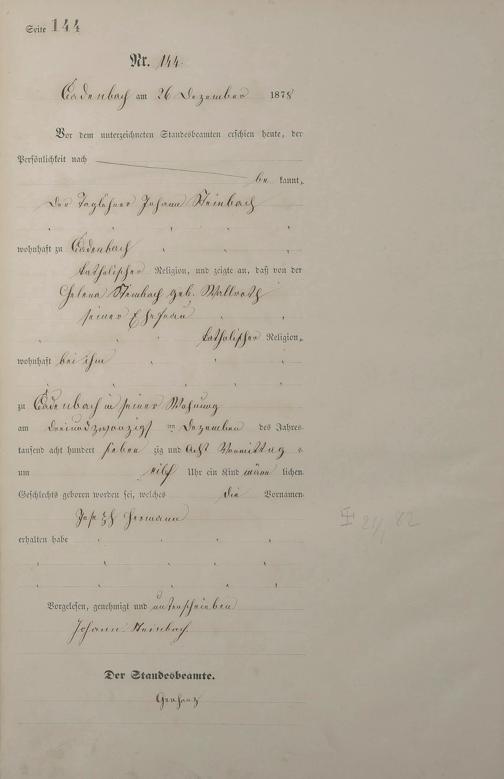 Seite 144
Nr. 144.
Cadenbach am 26 Dezember 1878
Vor dem unterzeichneten Standesbeamten erschien heute, der
Persönlichkeit nach
be kannt,
Der Taglöhner Johann Steinbach
wohnhaft zu Cadenbach
katholischer Religion, und zeigte an, daß von der
Helena Steinbach geb. Wallroth
seiner Ehefrau
katholischer Religion,
wohnhaft bei ihm
zu Cadenbach in seiner Wohnung
am dreiundzwanzigst ten Dezember des Jahres
tausend acht hundert sieben zig und acht Vormittag s
um elf Uhr ein Kind männ lichen
Geschlechts geboren worden sei, welches die Vornamen
Joseph Hermann
erhalten habe
Vorgelesen, genehmigt und unterschrieben
Johann Steinbach.
Der Standesbeamte.